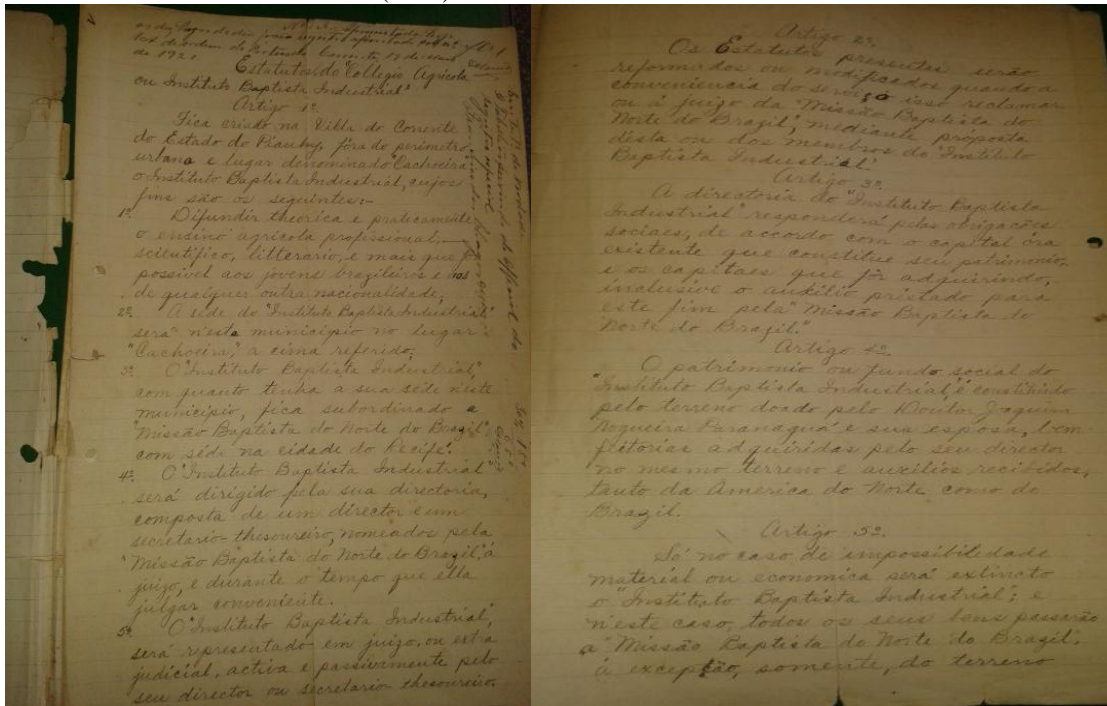 de 1920
Estatutos do "Collegio Agricola
ou Instituto Baptista Industrial"
Artigo 1º
Fica criado na Villa do Corrente
do Estado do Piauhy, fóra do perimetro
urbano e lugar denominado "Cachoeira"
o Instituto Baptista Industrial, cujos
fins são os seguintes:-
1º Difundir theorica e praticamente
o ensino agricola profissional,
scientifico, litterario, e mais que fôr
possivel aos jovens brazileiros e aos
de qualquer outra nacionalidade;
2º A séde do "Instituto Baptista Industrial"
será n'este municipio no lugar
"Cachoeira," a cima referido;
3º O "Instituto Baptista Industrial,"
com quanto tenha a sua séde n'este
municipio, fica subordinado a
"Missão Baptista do Norte do Brazil"
com séde na cidade do Recife.
4º O "Instituto Baptista Industrial"
será dirigido pela sua directoria,
composta de um director e um
secretario-thesoureiro, nomeados pela
"Missão Baptista do Norte do Brazil", á
juizo, e durante o tempo que ella
julgar conveniente.
5º O "Instituto Baptista Industrial,"
será representado em juizo, ou extra
judicial, activa e passivimente pelo
seu director ou secretario thesoureiro.
Artigo 2º
Os Estatutos presentes serão
reformados ou modificados quando a
conveniencia do serviço isso reclamar
ou á juizo da "Missão Baptista do
Norte do Brazil", mediante proposta
d'esta ou dos membros do "Instituto
Baptista Industrial".
Artigo 3º
A directoria do "Instituto Baptista
Industrial" responderá pelas obrigações
sociaes, de accordo com o capital ora
existente que constitue seu patrimonio,
e os capitaes que fôr adquirindo,
inclusive o auxilio prestado para
este fim pela "Missão Baptista do
Norte do Brazil."
Artigo 4º
O patrimonio ou fundo social do
"Instituto Baptista Industrial", é constituido
pelo terreno doado pelo Doutor Joaquim
Nogueira Paranaguá e sua esposa, bem
feitorias adquiridas pelo seu director
no mesmo terreno e auxilios recibidos,
tanto da America do Norte como do
Brazil.
Artigo 5º
Só no caso de impossibilidade
material ou economica será extincto
o "Instituto Baptista Industrial"; e
n'este caso, todos os seus bens passarão
a "Missão Baptista do Norte do Brazil",
á excepção, somente, do terreno